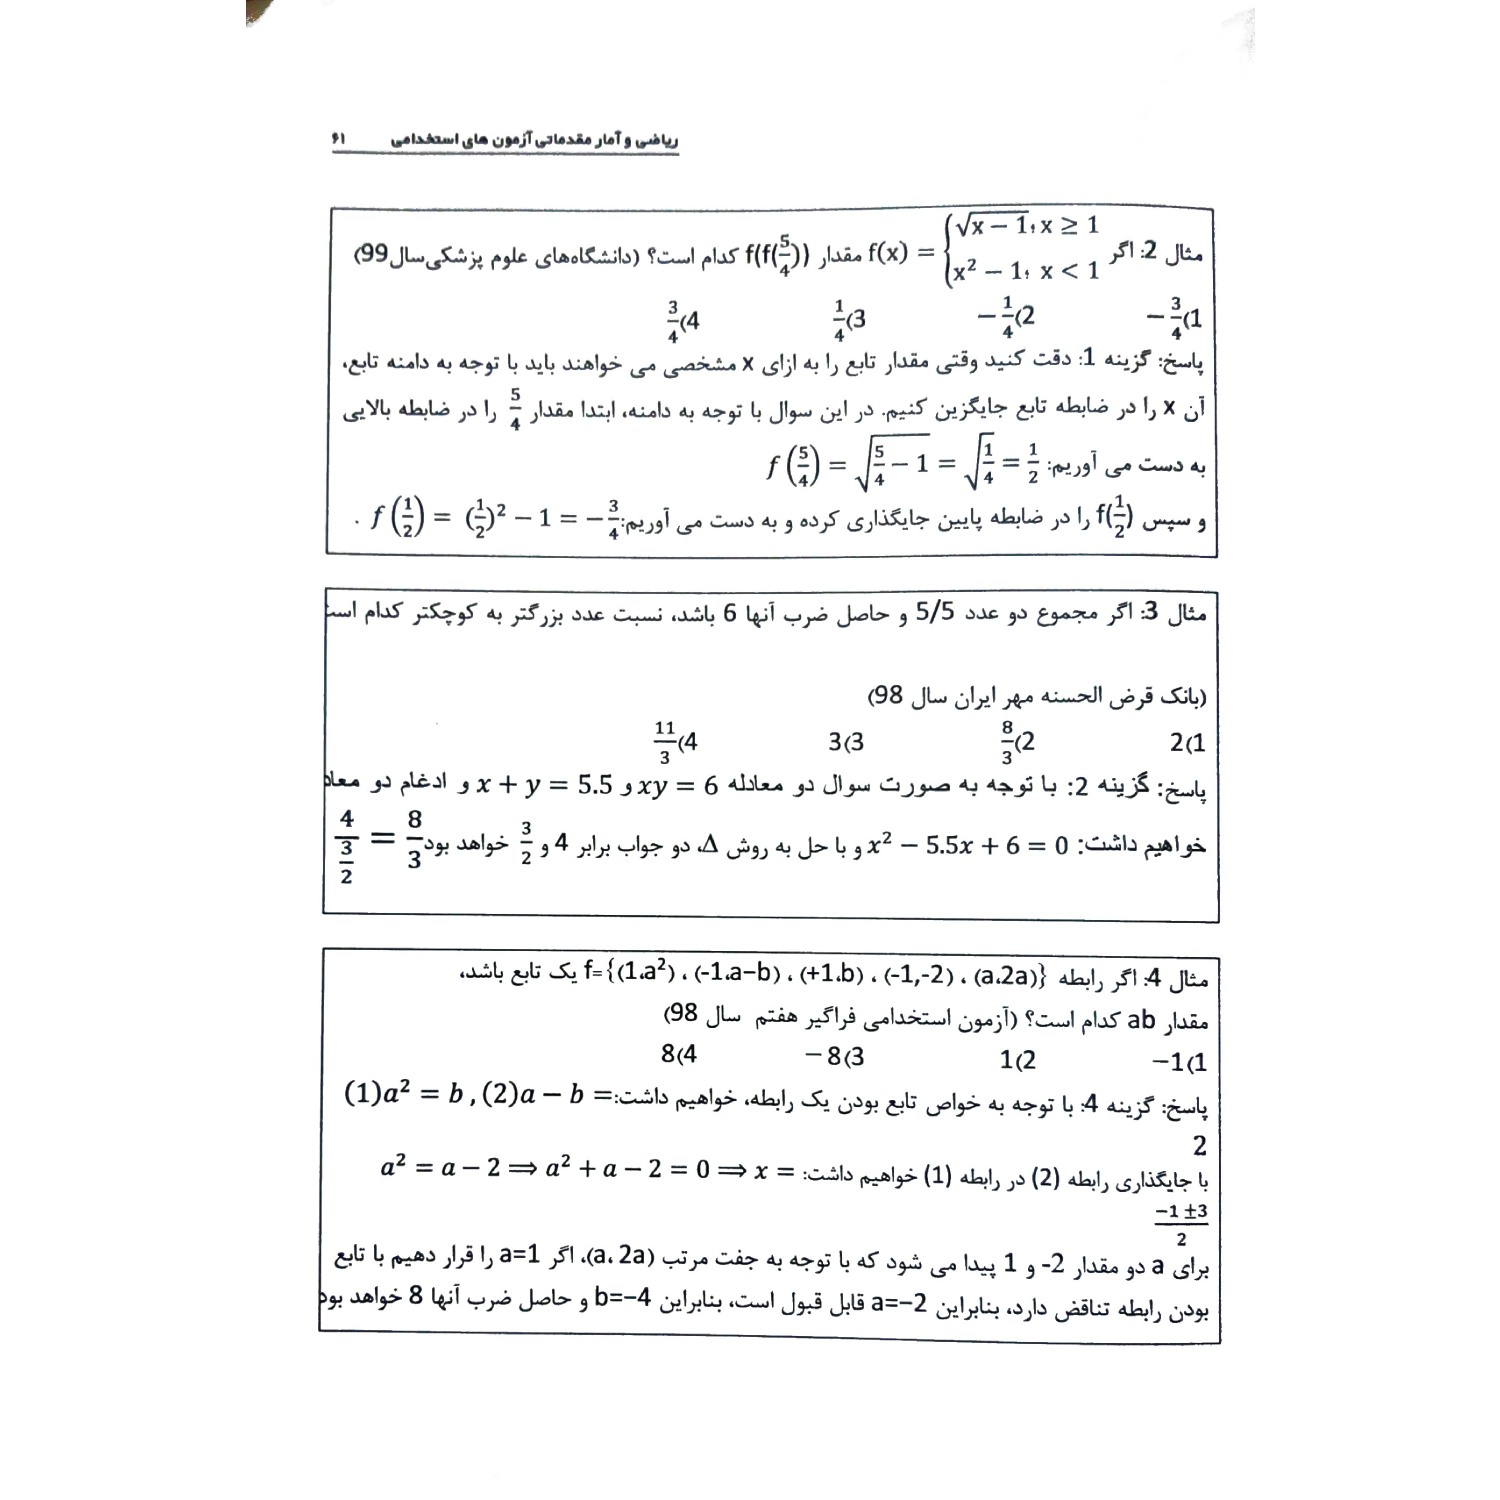 ریاضی و آمار مقدماتی آزمون های استخدامی ۶۱
مثال 2: اگر f(x) = {√(x − 1), x ≥ 1 ; x² − 1, x < 1 مقدار f(f(5/4)) کدام است؟ (دانشگاه‌های علوم پزشکی سال 99)
1) −3/4 2) −1/4 3) 1/4 4) 3/4
پاسخ: گزینه 1: دقت کنید وقتی مقدار تابع را به ازای x مشخصی می خواهند باید با توجه به دامنه تابع،
آن x را در ضابطه تابع جایگزین کنیم. در این سوال با توجه به دامنه، ابتدا مقدار 5/4 را در ضابطه بالایی
به دست می آوریم: f(5/4) = √(5/4 − 1) = √(1/4) = 1/2
و سپس f(1/2) را در ضابطه پایین جایگذاری کرده و به دست می آوریم: f(1/2) = (1/2)² − 1 = −3/4 .
مثال 3: اگر مجموع دو عدد 5/5 و حاصل ضرب آنها 6 باشد، نسبت عدد بزرگتر به کوچکتر کدام است
(بانک قرض الحسنه مهر ایران سال 98)
1) 2 2) 8/3 3) 3 4) 11/3
پاسخ: گزینه 2: با توجه به صورت سوال دو معادله xy = 6 و x + y = 5.5 و ادغام دو معاد
خواهیم داشت: x² − 5.5x + 6 = 0 و با حل به روش Δ، دو جواب برابر 4 و 3/2 خواهد بود 4/(3/2) = 8/3
مثال 4: اگر رابطه f={(1،a²) ، (-1،a−b) ، (+1،b) ، (-1,-2) ، (a،2a)} یک تابع باشد،
مقدار ab کدام است؟ (آزمون استخدامی فراگیر هفتم سال 98)
1) −1 2) 1 3) −8 4) 8
پاسخ: گزینه 4: با توجه به خواص تابع بودن یک رابطه، خواهیم داشت: (1)a² = b , (2)a − b =
2
با جایگذاری رابطه (2) در رابطه (1) خواهیم داشت: a² = a − 2 ⟹ a² + a − 2 = 0 ⟹ x =
(−1 ±3)/2
برای a دو مقدار 2- و 1 پیدا می شود که با توجه به جفت مرتب (a، 2a)، اگر a=1 را قرار دهیم با تابع
بودن رابطه تناقض دارد، بنابراین a=−2 قابل قبول است، بنابراین b=−4 و حاصل ضرب آنها 8 خواهد بود